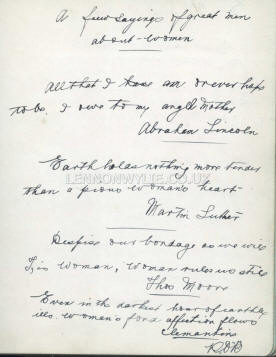 A few sayings of great men
about women
All that I have am or ever hope
to be, I owe to my angel mother
Abraham Lincoln
Earth holds nothing more tender
than a pious woman's heart
LENNONWYLIE.CO.UK
Martin Luther
Despise our bondage as we will
Tis woman, woman rules us still
Thos Moore
Even in the darkest hour of earthly
ills. Women's fond affection glows